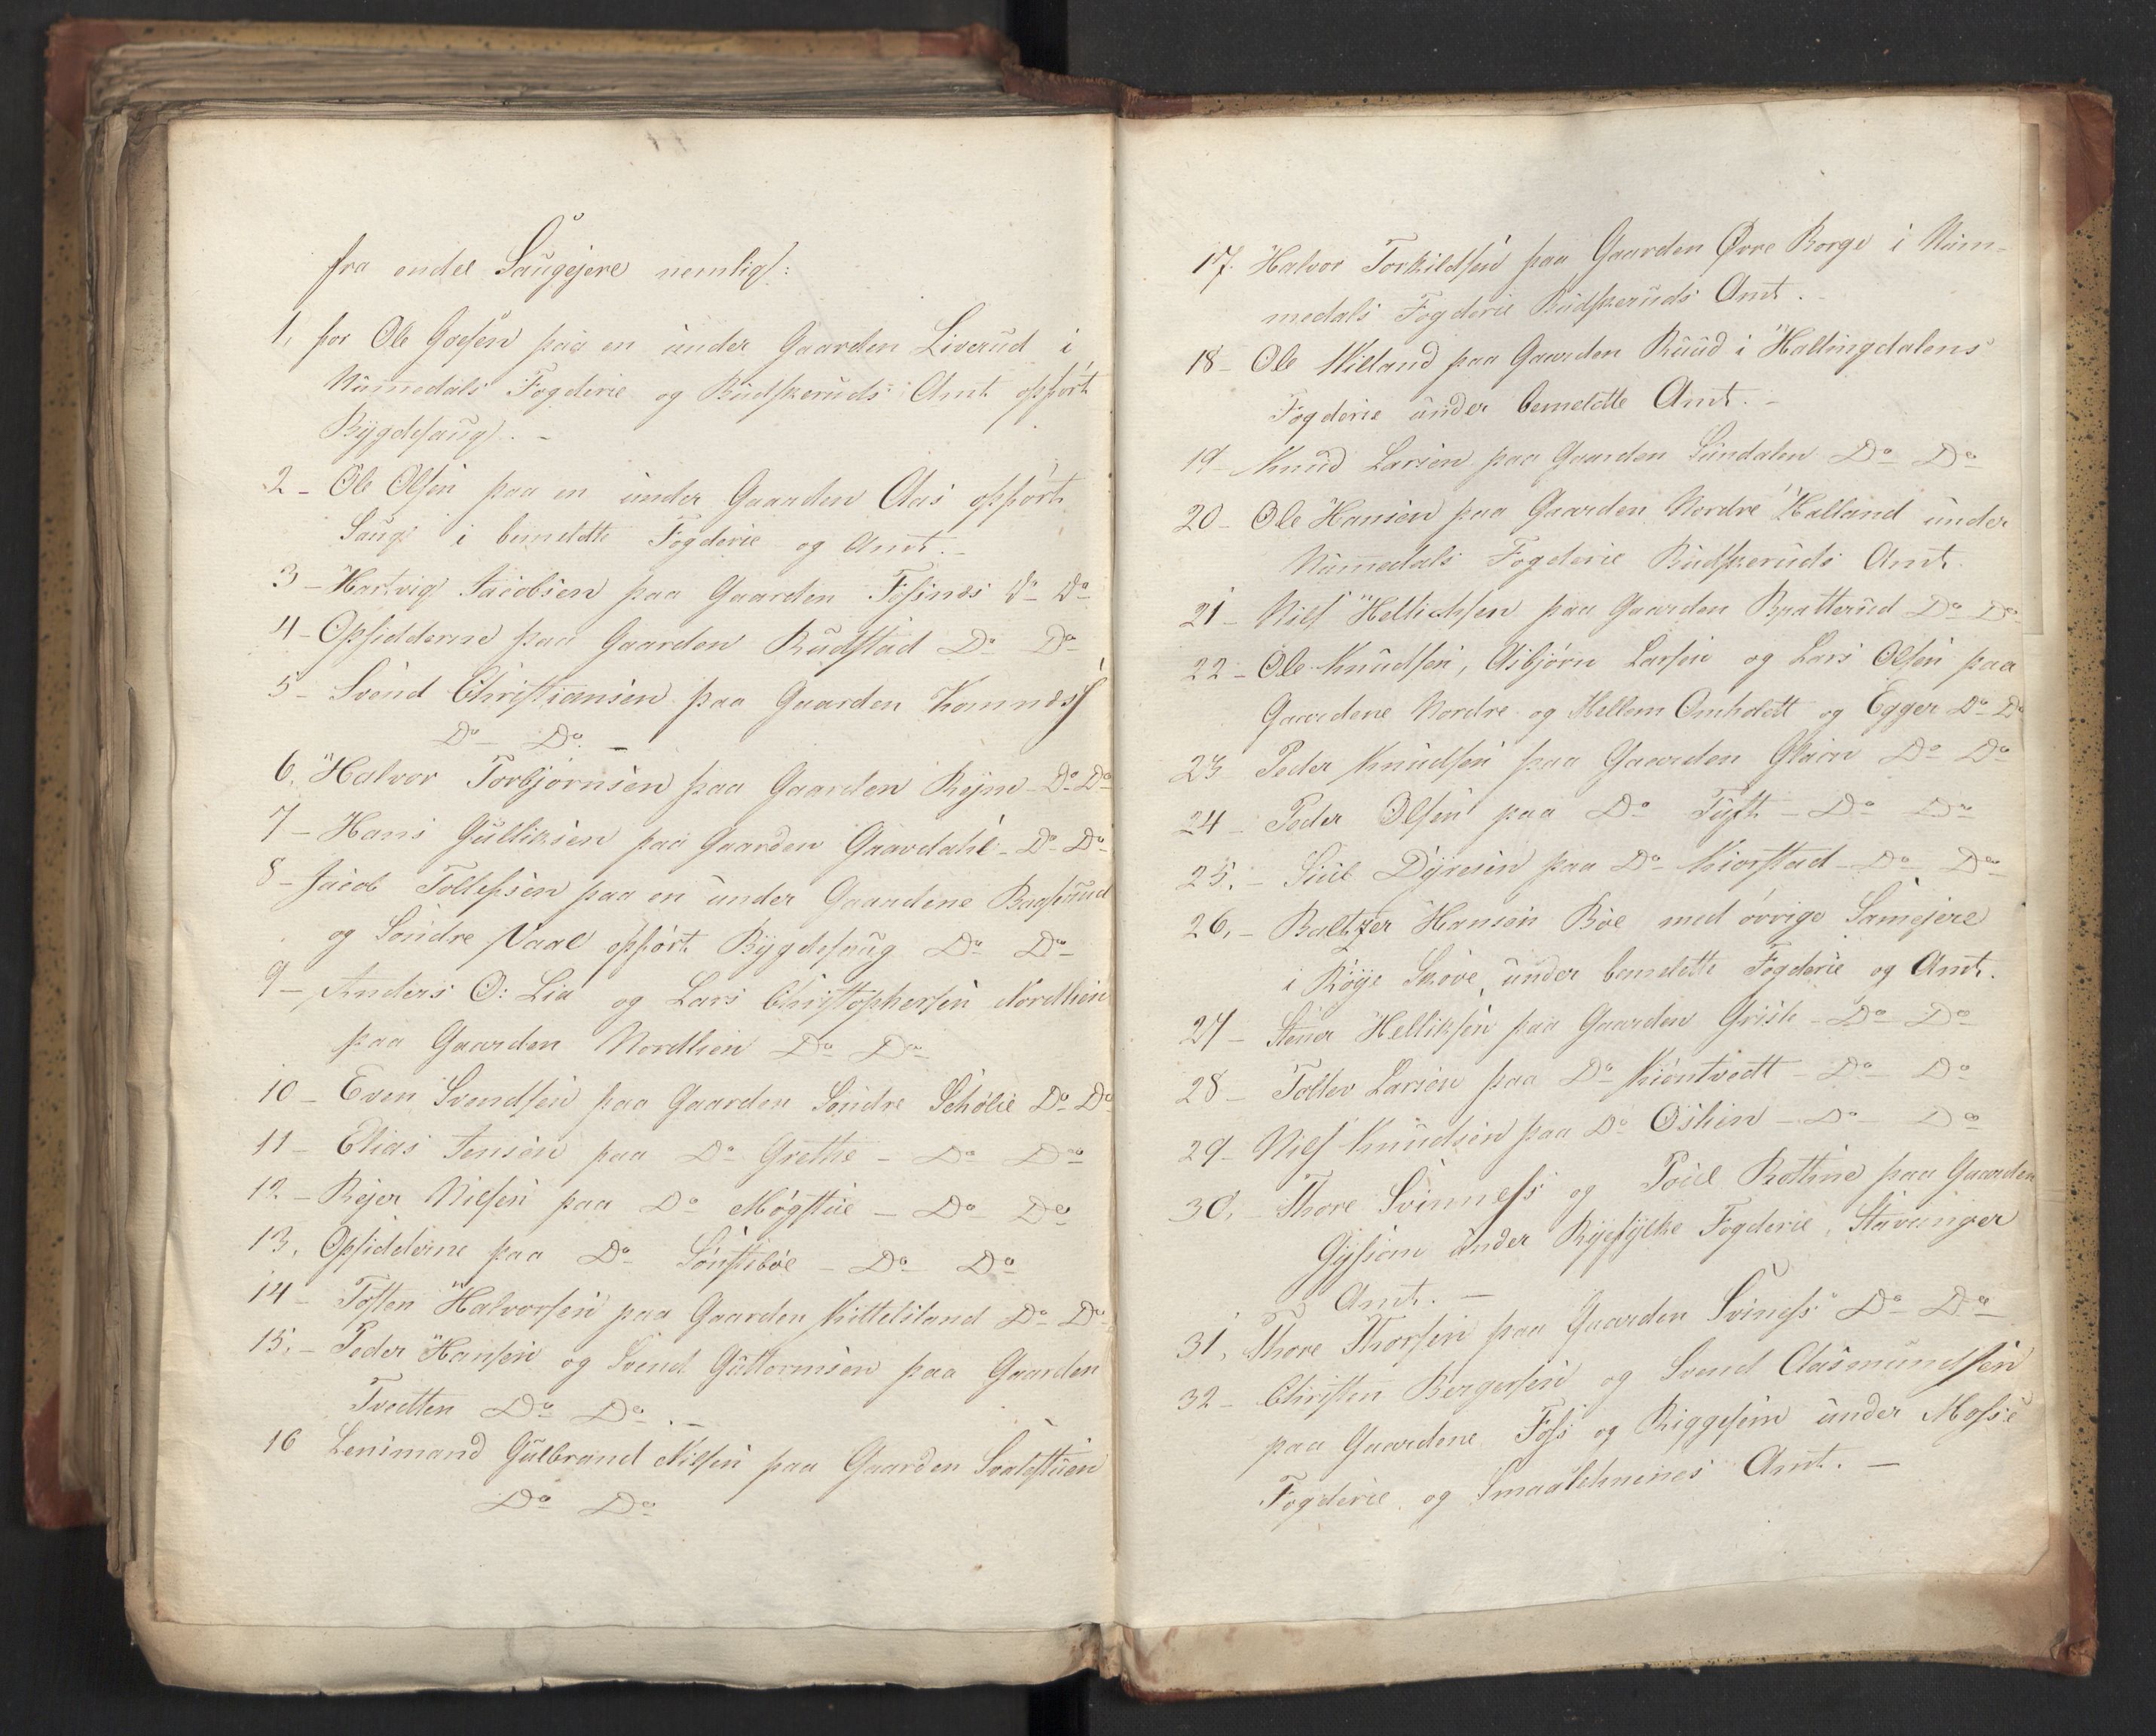 fra endel Saugejere nemlig:
1, for Ole Goesen paa en under Gaarden Liverud i
Numedals Fogderie og Budskeruds Amt opført
Bygdesaug. -
2 - Ole Olsen paa en under Gaarden Aas opført
Saug i bemeldte Fogderie og Amt. -
3 - Hartvig Jacobsen paa Gaarden Fosnæs Do Do
4 - Opsidderne paa Gaarden Rudstad Do Do
5 - Svend Christiansen paa Gaarden Komnæs
Do - Do. -
6. Halvor Torbjørnsen paa Gaarden Rejne - Do Do
7 - Hans Gulliksen paa Gaarden Gaardahl - Do Do
8 - Jacob Tollefsen paa en under Gaardene
og Søndre Vaale opført Bygdesaug Do Do
9 - Anders O: Lia og Lars Christophersen Nordlien
paa Gaarden Nordlien Do Do
10 - Even Svendsen paa Gaarden Søndre Schølie Do Do
11 - Elias Jensen paa Do Grethe - Do Do
12 - Rejer Nilsen paa Do Møgstue - Do Do
13, Opsidderne paa Do Sønstebøe - Do Do
14 - Tosten Halvorsen paa Gaarden Kittelsland Do Do
15, - Peder Hansen og Svend Guttormsen paa Gaarden
Tvedten Do Do. -
16 Lensmand Gulbrand Nilsen paa Gaarden Svalestuen
Do Do
17. Halvor Torkildsen paa Gaarden Øvre Borge i Num-
medals Fogderie Budskeruds Amt.
18 - Ole Villand paa Gaarden Ruud i Hallingdalens
Fogderie under bemeldte Amt. -
19 - Knud Larsen paa Gaarden Sundalen Do Do
20 - Ole Hansen paa Gaarden Nordre Halland under
Numedals Fogderie Budskeruds Amt.
21 - Nils Hellichsen paa Gaarden Bratterud Do Do
22 - Ole Knudsen, Asbjørn Larsen og Lars Olsen paa
Gaardene Nordre og Mellem Omholdt og Egger Do Do
23 Peder Knudsen paa Gaarden Do Do
24 - Peder Olsen paa Do Tuft - Do Do
25, - Siul Dyresen paa Do Kiorstad - Do Do
26, - Baltzer Hansen Bøe med øvrige Sameiere
i Røye Skove, under bemeldte Fogderie og Amt.
27 - Stener Helliksen paa Gaarden Grisle - Do Do
28 - Tollev Larsen paa Do Kiøntvedt - Do Do
29 - Nils Knudsen paa Do Oslien - Do Do
30, - Thore Svinness og Poul Rottine paa Gaarden
under Ryefylke Fogderie, Stavanger
Amt. -
31, Thore Thorsen paa Gaarden Svines Do Do
32 - Christen Bergersen og Svend Aasmundsen
paa Gaardene Foss og Riggesøen under Mosse
Fogderie og Smaalehnenes Amt. -